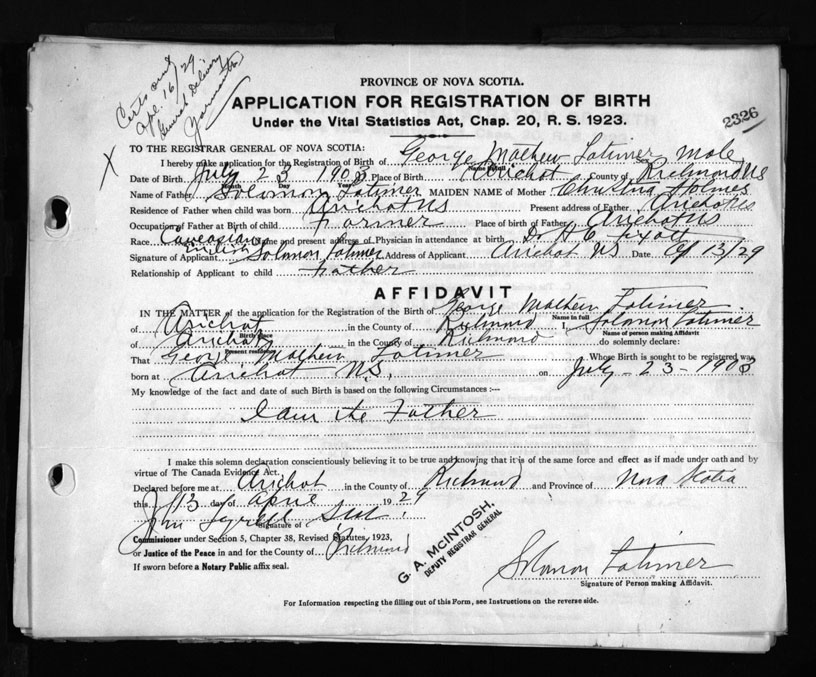 Certs sent
Apl. 16/29
General Delivery
Yarmouth
X
2326
PROVINCE OF NOVA SCOTIA.
APPLICATION FOR REGISTRATION OF BIRTH
Under the Vital Statistics Act, Chap. 20, R. S. 1923.
TO THE REGISTRAR GENERAL OF NOVA SCOTIA:
I hereby make application for the Registration of Birth of George Mathew Latimer Male
Date of Birth July 23 1903 Place of Birth Arichat County of Richmond NS
Month Day Year
Name of Father Solomon Latimer MAIDEN NAME of Mother Christina Holmes
Residence of Father when child was born Arichat NS Present address of Father Arichat NS
Occupation of Father at Birth of child Farmer Place of birth of Father Arichat NS
Race Name and present address of Physician in attendance at birth Dr H C
Signature of Applicant Solomon Latimer Address of Applicant Arichat NS Date 13/29
Relationship of Applicant to child Father
AFFIDAVIT
IN THE MATTER of the application for the Registration of the Birth of George Mathew Latimer
Name in full
of Arichat in the County of Richmond I, Solomon Latimer
Name of person making Affidavit
of Arichat in the County of Richmond do solemnly declare:
Present residence
That George Mathew Latimer Whose Birth is sought to be registered was
born at Arichat N.S. on July - 23 - 1903
My knowledge of the fact and date of such Birth is based on the following Circumstances :—
I am the Father
I make this solemn declaration conscientiously believing it to be true and knowing that it is of the same force and effect as if made under oath and by
virtue of The Canada Evidence Act.
Declared before me at Arichat in the County of Richmond and Province of Nova Scotia
this 13 day of April 1929
Signature of
Commissioner under Section 5, Chapter 38, Revised Statutes, 1923,
or Justice of the Peace in and for the County of Richmond
If sworn before a Notary Public affix seal.
G. A. McINTOSH,
DEPUTY REGISTRAR GENERAL
Solomon Latimer
Signature of Person making Affidavit.
For Information respecting the filling out of this Form, see Instructions on the reverse side.